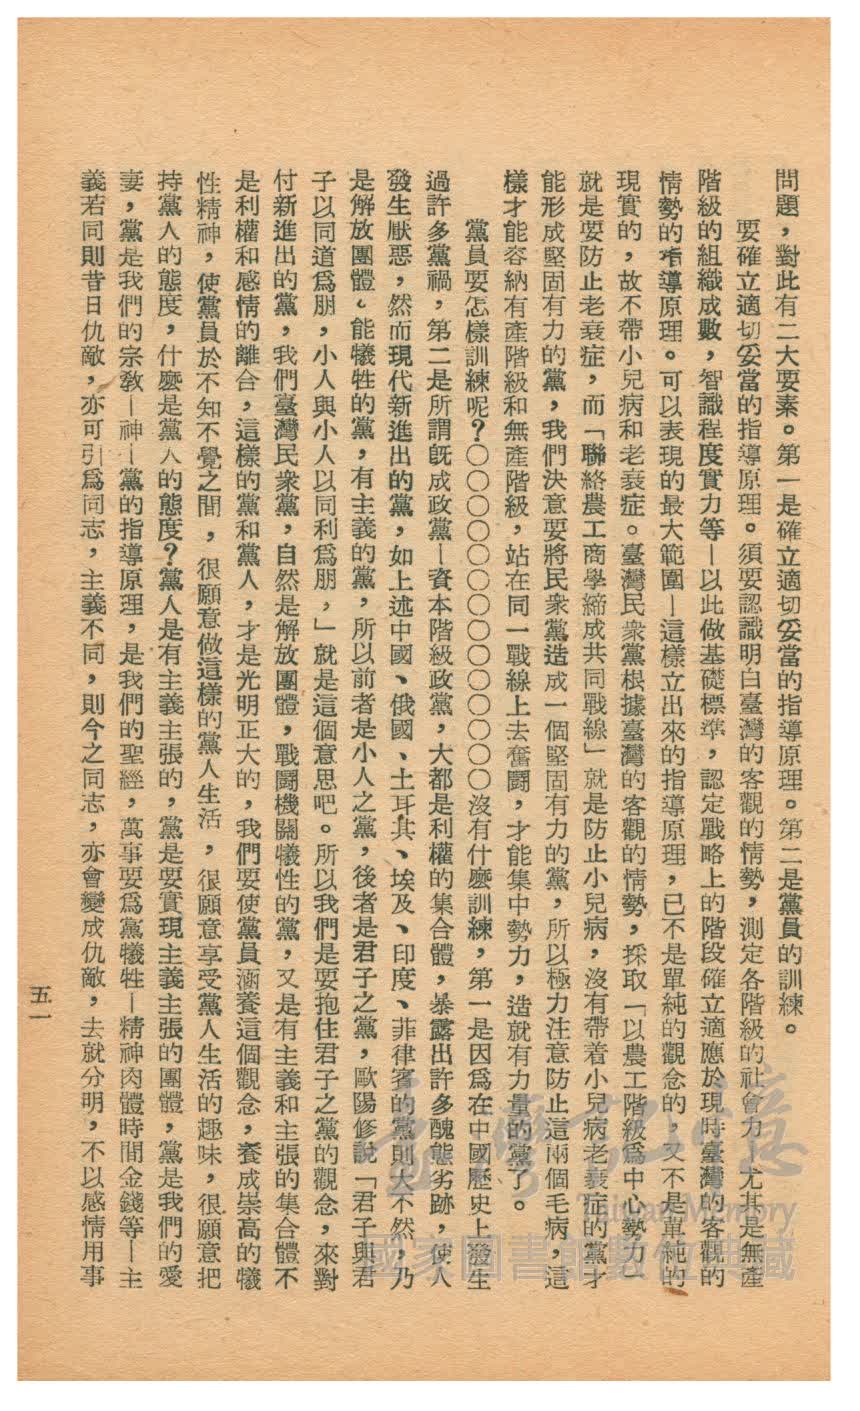 問題，對此有二大要素。第一是確立適切妥當的指導原理。第二是黨員的訓練。
要確立適切妥當的指導原理。須要認識明白臺灣的客觀的情勢，測定各階級的社會力—尤其是無產
階級的組織成數，智識程度實力等—以此做基礎標準，認定戰略上的階段確立適應於現時臺灣的客觀的
情勢的指導原理。可以表現的最大範圍—這樣立出來的指導原理，已不是單純的觀念的，又不是單純的
現實的，故不帶小兒病和老衰症。臺灣民衆黨根據臺灣的客觀的情勢，採取「以農工階級爲中心勢力」
就是要防止老衰症，而「聯絡農工商學締成共同戰線」就是防止小兒病，沒有帶着小兒病老衰症的黨才
能形成堅固有力的黨，我們決意要將民衆黨造成一個堅固有力的黨，所以極力注意防止這兩個毛病，這
樣才能容納有產階級和無產階級，站在同一戰線上去奮鬪，才能集中勢力，造就有力量的黨了。
黨員要怎樣訓練呢？〇〇〇〇〇〇〇〇〇〇〇〇〇〇沒有什麼訓練，第一是因爲在中國歷史上發生
過許多黨禍，第二是所謂旣成政黨—資本階級政黨，大都是利權的集合體，暴露出許多醜態劣跡，使人
發生厭惡，然而現代新進出的黨，如上述中國、俄國、土耳其、埃及、印度、菲律賓的黨則大不然，乃
是解放團體、能犧牲的黨，有主義的黨，所以前者是小人之黨，後者是君子之黨，歐陽修說「君子與君
子以同道爲朋，小人與小人以同利爲朋，」就是這個意思吧。所以我們是要抱住君子之黨的觀念，來對
付新進出的黨，我們臺灣民衆黨，自然是解放團體，戰鬪機關犧性的黨，又是有主義和主張的集合體不
是利權和感情的離合，這樣的黨和黨人，才是光明正大的，我們要使黨員涵養這個觀念，養成崇高的犧
性精神，使黨員於不知不覺之間，很願意做這樣的黨人生活，很願意享受黨人生活的趣味，很願意把
持黨人的態度，什麼是黨人的態度？黨人是有主義主張的，黨是要實現主義主張的團體，黨是我們的愛
妻，黨是我們的宗敎—神—黨的指導原理，是我們的聖經，萬事要爲黨犧牲—精神肉體時間金錢等—主
義若同則昔日仇敵，亦可引爲同志，主義不同，則今之同志，亦會變成仇敵，去就分明，不以感情用事
五一
臺灣記憶
Taiwan Memory
國家圖書館數位典藏